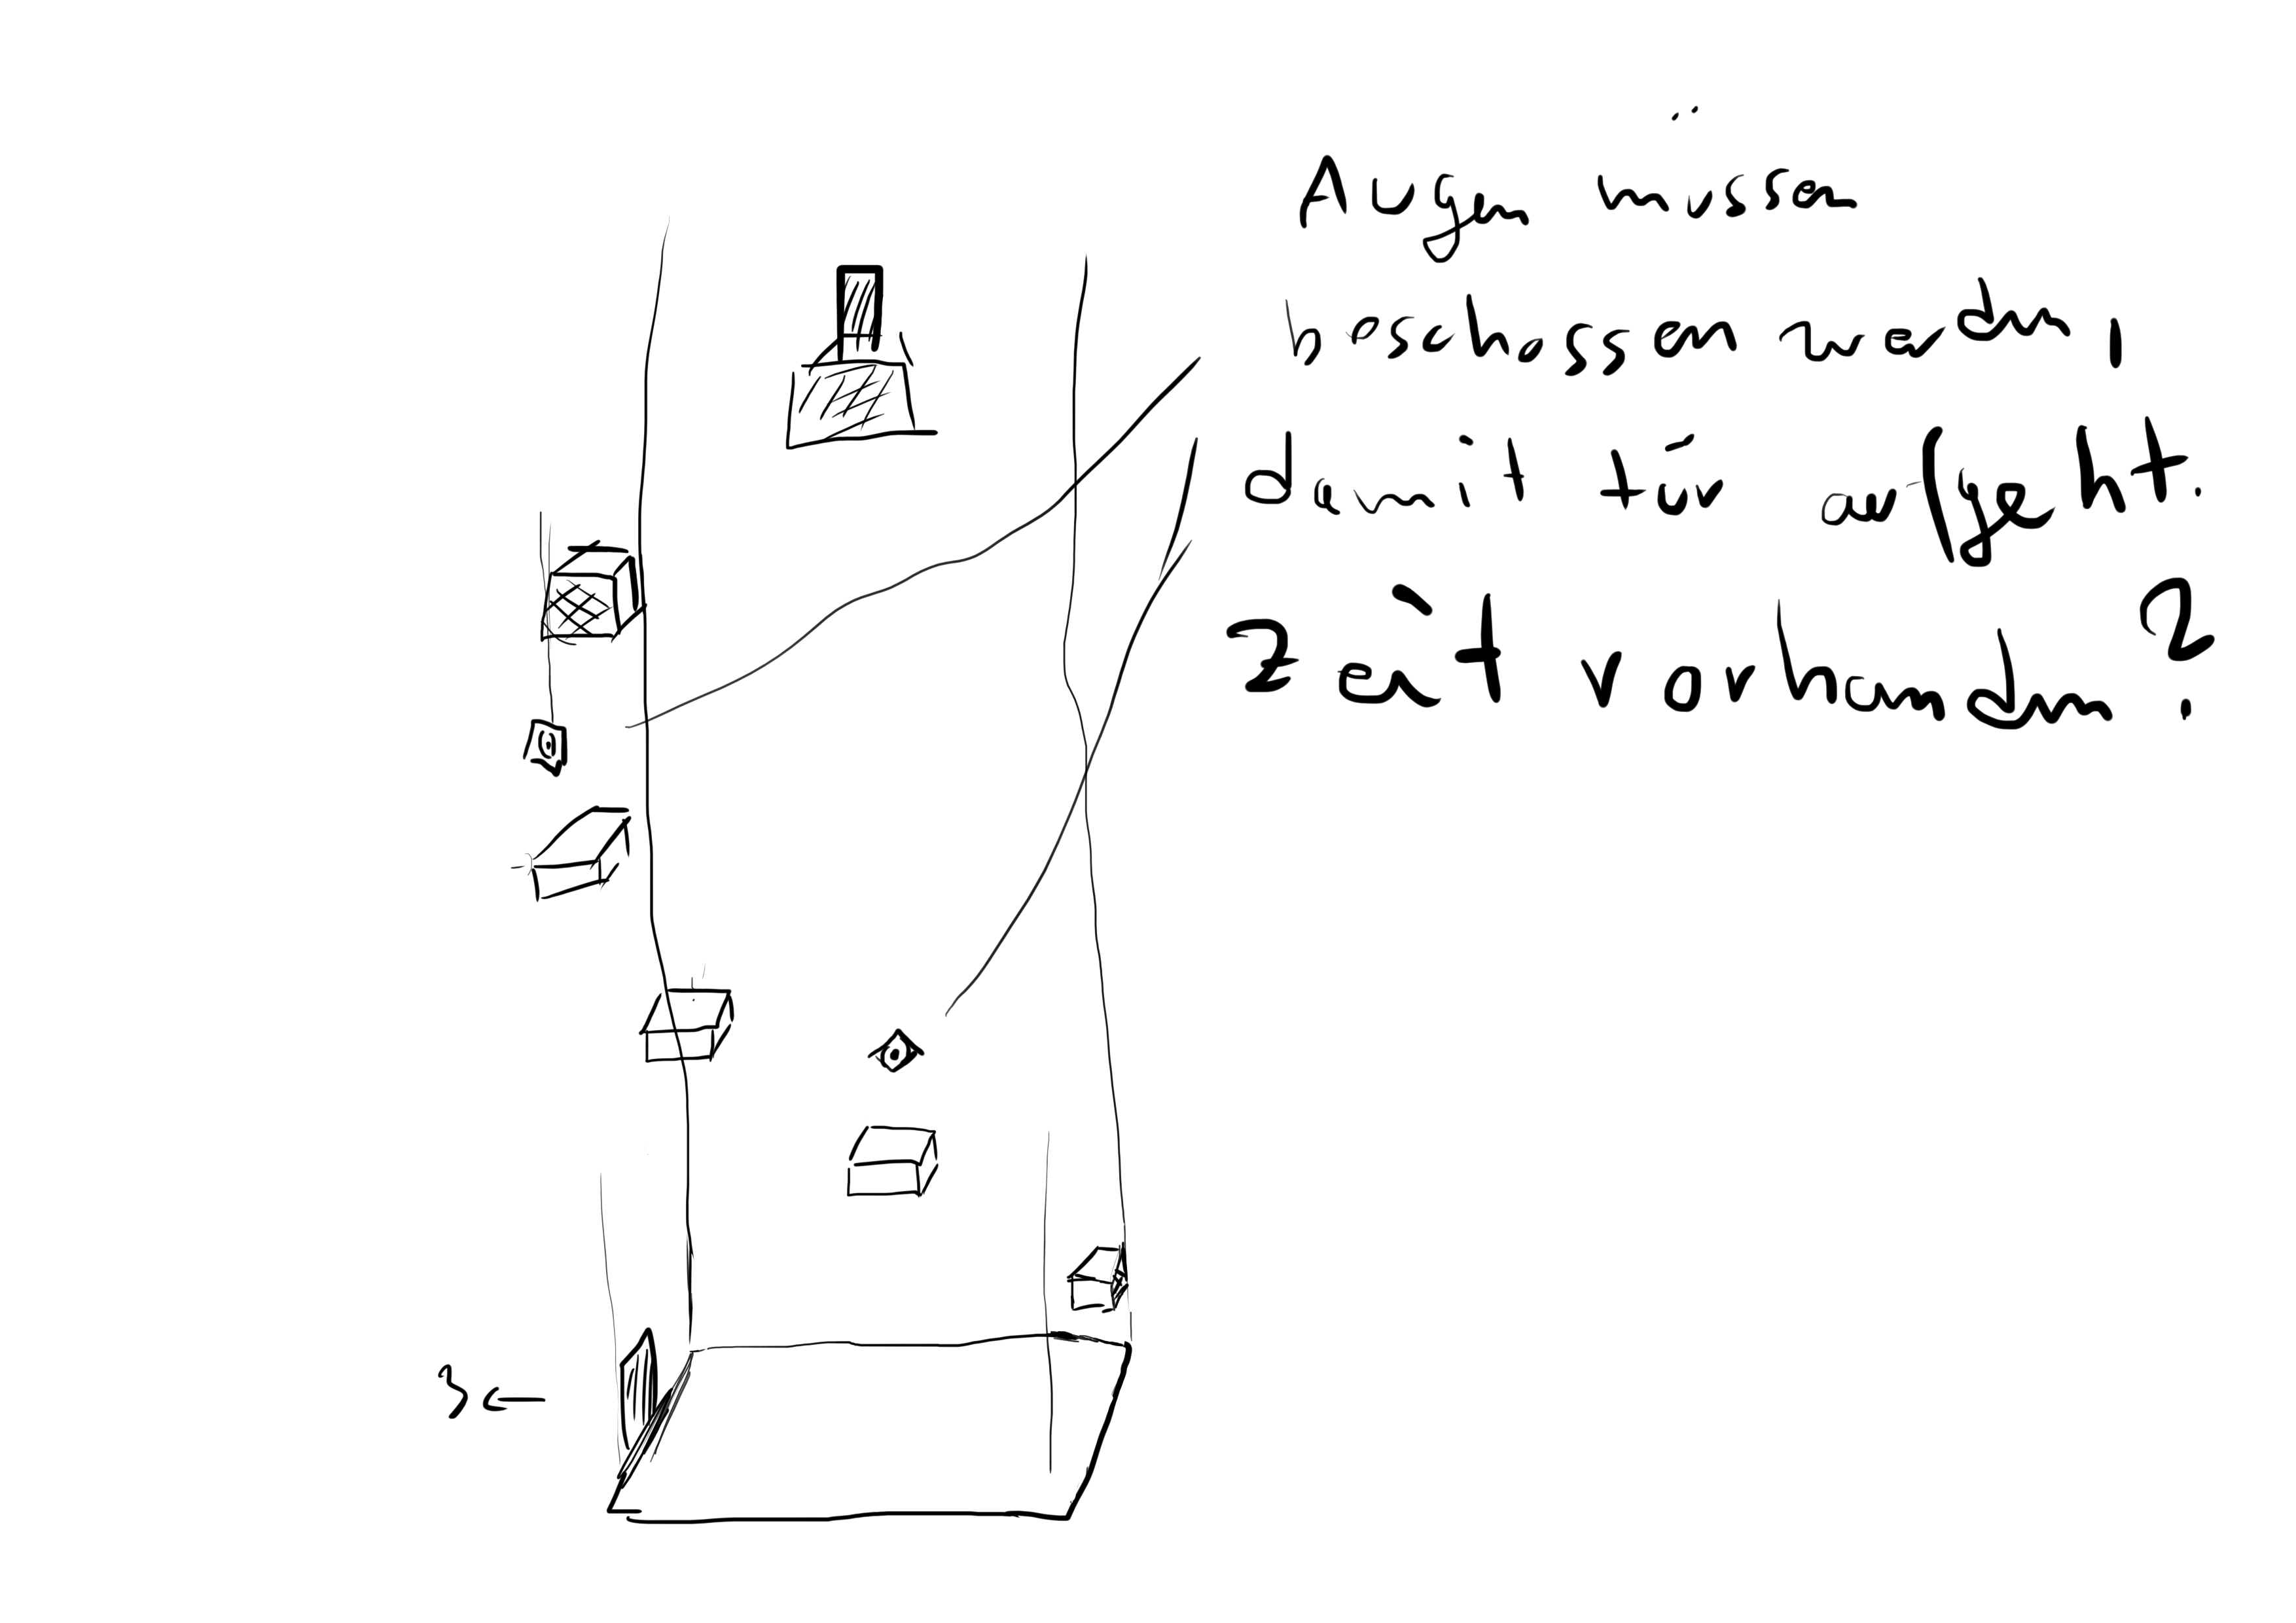 Augen müssen
beschossen werden,
damit tür aufgeht.
Zeit vorhanden?
3 ←